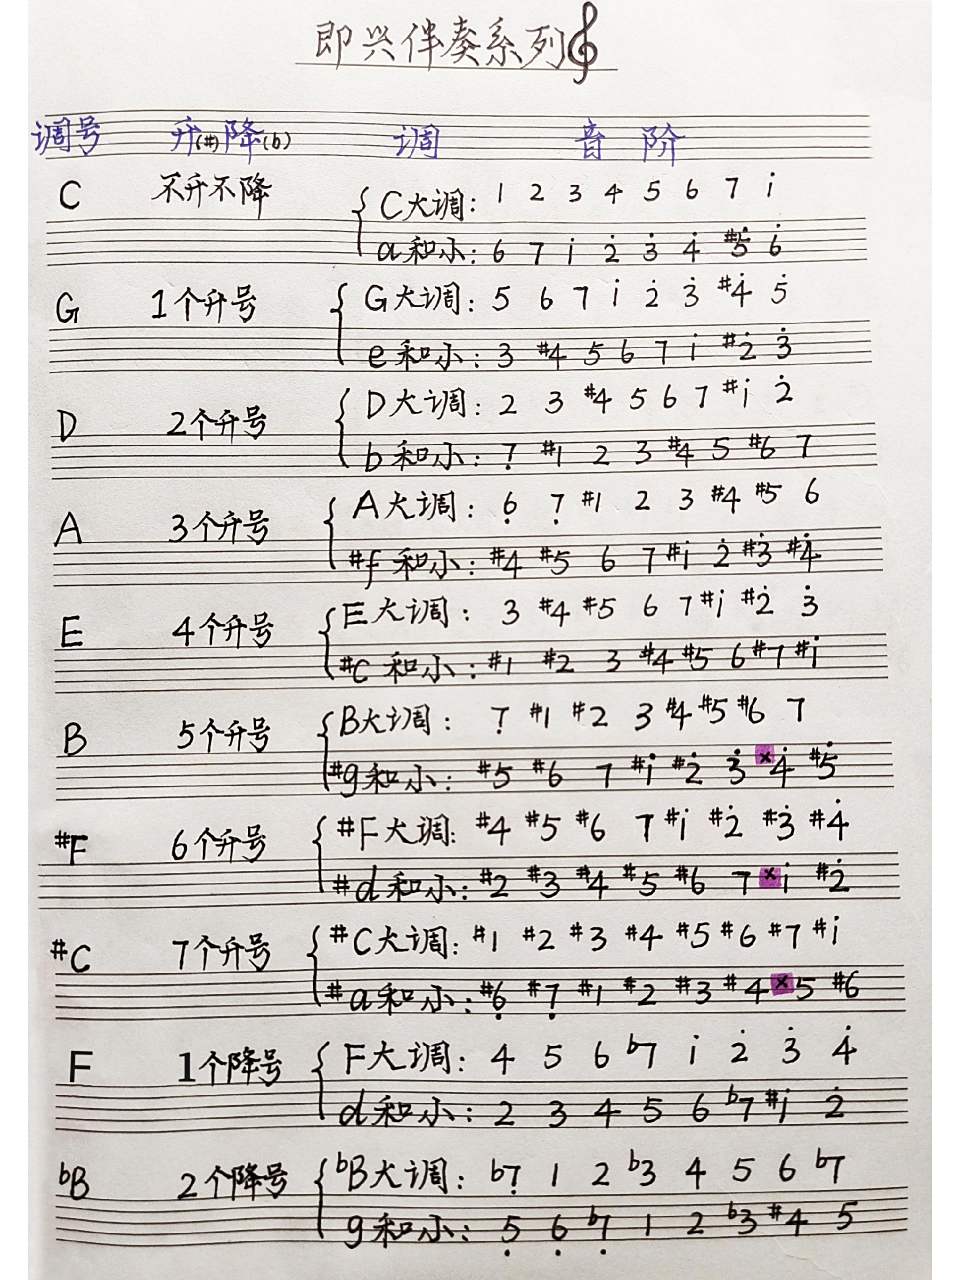 即兴伴奏系列
调号 升(#)降(b) 调 音阶
C 不升不降 C大调: 1 2 3 4 5 6 7 i̇
a和小: 6 7 i̇ 2̇ 3̇ 4̇ #5̇ 6̇
G 1个升号 G大调: 5 6 7 i̇ 2̇ 3̇ #4̇ 5̇
e和小: 3 #4 5 6 7 i̇ #2̇ 3̇
D 2个升号 D大调: 2 3 #4 5 6 7 #i̇ 2̇
b和小: 7̣ #1 2 3 #4 5 #6 7
A 3个升号 A大调: 6̣ 7̣ #1 2 3 #4 #5 6
#f和小: #4 #5 6 7 #i̇ 2̇ #3̇ #4̇
E 4个升号 E大调: 3 #4 #5 6 7 #i̇ #2̇ 3̇
#c和小: #1 #2 3 #4 #5 6 #7 #i̇
B 5个升号 B大调: 7̣ #1 #2 3 #4 #5 #6 7
#g和小: #5 #6 7 #i̇ #2̇ 3̇ x4̇ #5̇
#F 6个升号 #F大调: #4 #5 #6 7 #i̇ #2̇ #3̇ #4̇
#d和小: #2 #3 #4 #5 #6 7 xi̇ #2̇
#C 7个升号 #C大调: #1 #2 #3 #4 #5 #6 #7 #i̇
#a和小: #6̣ #7̣ #1 #2 #3 #4 x5 #6
F 1个降号 F大调: 4 5 6 b7 i̇ 2̇ 3̇ 4̇
d和小: 2 3 4 5 6 b7 #i̇ 2̇
bB 2个降号 bB大调: b7̣ 1 2 b3 4 5 6 b7
g和小: 5̣ 6̣ b7̣ 1 2 b3 #4 5